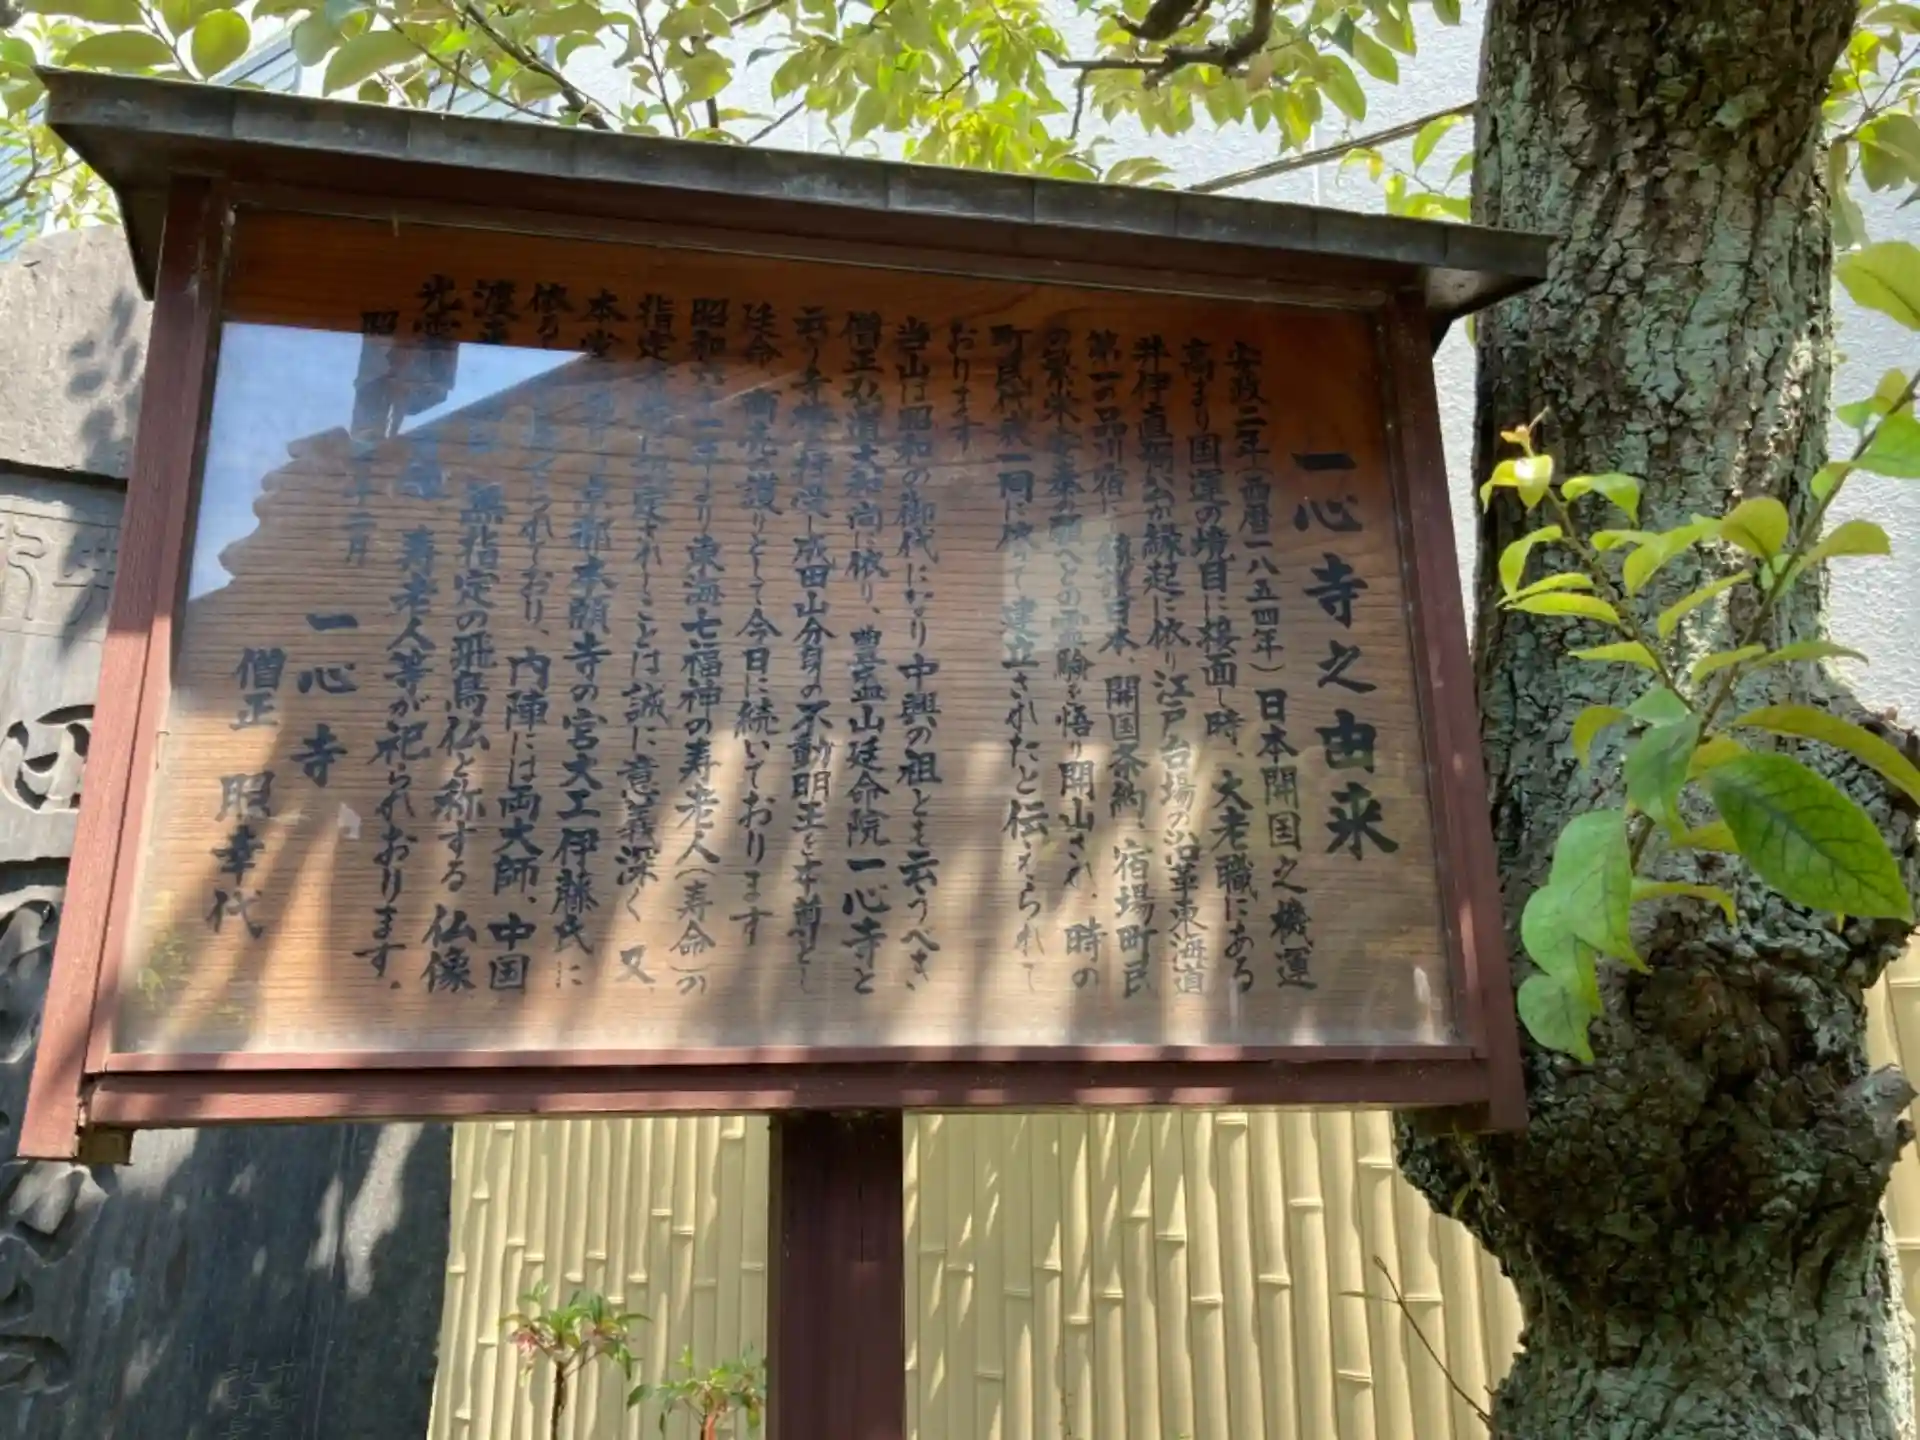 一心寺之由来
安政二年(西暦一八五四年)日本開国之機運
高まり国運の境目に接面し時、大老職にある
井伊直弼公が縁起に依り江戸台場の沿革東海道
第一の品川宿に 日本、開国条約、宿場町民
の繁栄安泰の願へとの霊験を悟り開山され、時の
町民代表一同に依って建立されたと伝えられて
おります
当山は昭和の御代になり中興の祖とも云うべき、
僧正弘道大和尚に依り、豊盛山延命院一心寺と
云う寺号を拝受し成田山分身の不動明王を本尊とし
延命 商売の護りとして今日に続いております
昭和六十一年より東海七福神の寿老人(寿命)の
指定 されしことは誠に意義深く 又、
本堂 京都本願寺の宮大工伊藤氏に
依り られており、内陣には両大師、中国
渡来 無指定の飛鳥仏と称する仏像
寿老人等が祀られおります。
昭 年二月
一心寺
僧正 照幸代